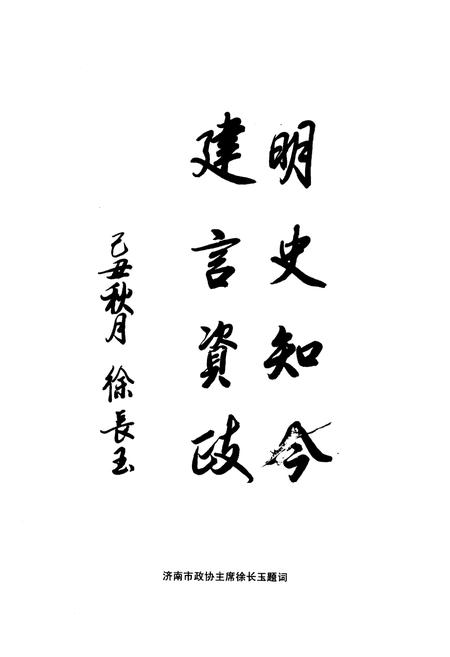 明史知今
建言資政
己丑秋月 徐長玉
济南市政协主席徐长玉题词